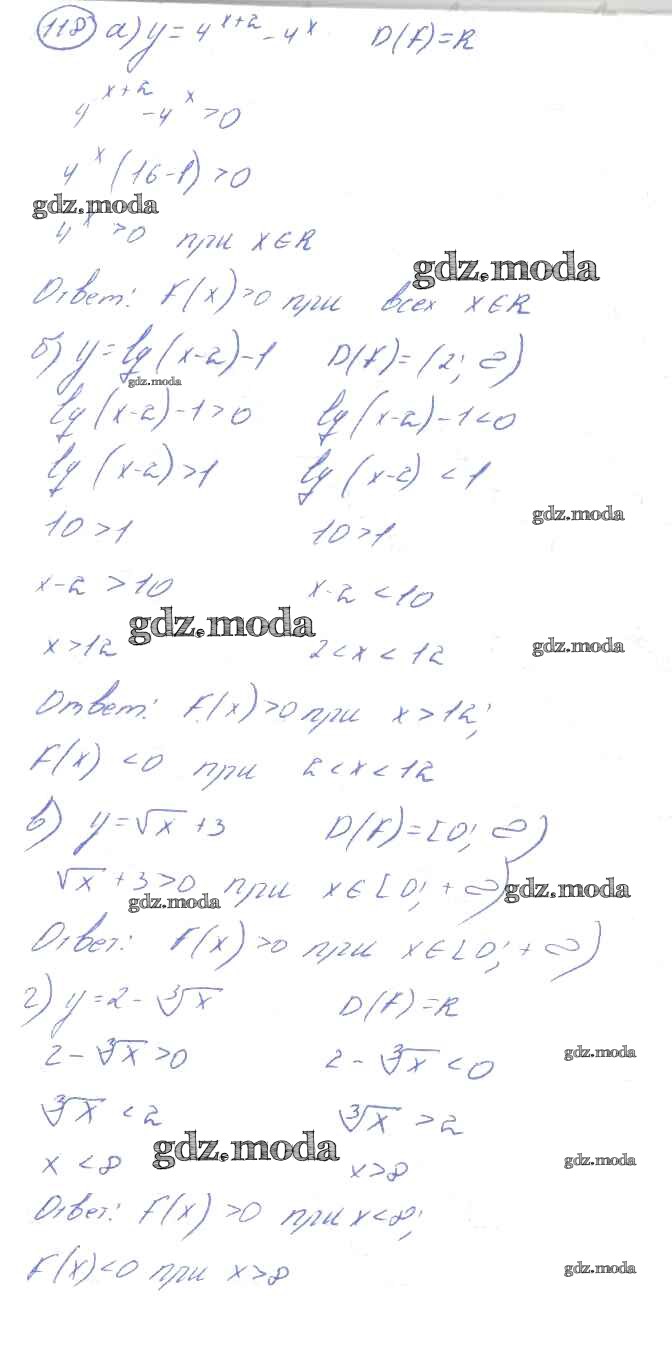 118 а) y = 4^(x+2) - 4^x D(f) = R
4^(x+2) - 4^x > 0
4^x (16-1) > 0
gdz.moda
4^x > 0 при x ∈ R
gdz.moda
Ответ: f(x) > 0 при всех x ∈ R
б) y = lg(x-2) - 1 D(f) = (2; ∞)
gdz.moda
lg(x-2) - 1 > 0 lg(x-2) - 1 < 0
lg(x-2) > 1 lg(x-2) < 1
gdz.moda
10 > 1 10 > 1
x-2 > 10 x-2 < 10
gdz.moda
x > 12 2 < x < 12
gdz.moda
Ответ: f(x) > 0 при x > 12;
f(x) < 0 при 2 < x < 12
в) y = √x + 3 D(f) = [0; ∞)
√x + 3 > 0 при x ∈ [0; +∞)
gdz.moda
gdz.moda
Ответ: f(x) > 0 при x ∈ [0; +∞)
г) y = 2 - ∛x D(f) = R
2 - ∛x > 0 2 - ∛x < 0
gdz.moda
∛x < 2 ∛x > 2
gdz.moda
x < 8 x > 8
gdz.moda
Ответ: f(x) > 0 при x < 8;
f(x) < 0 при x > 8
gdz.moda